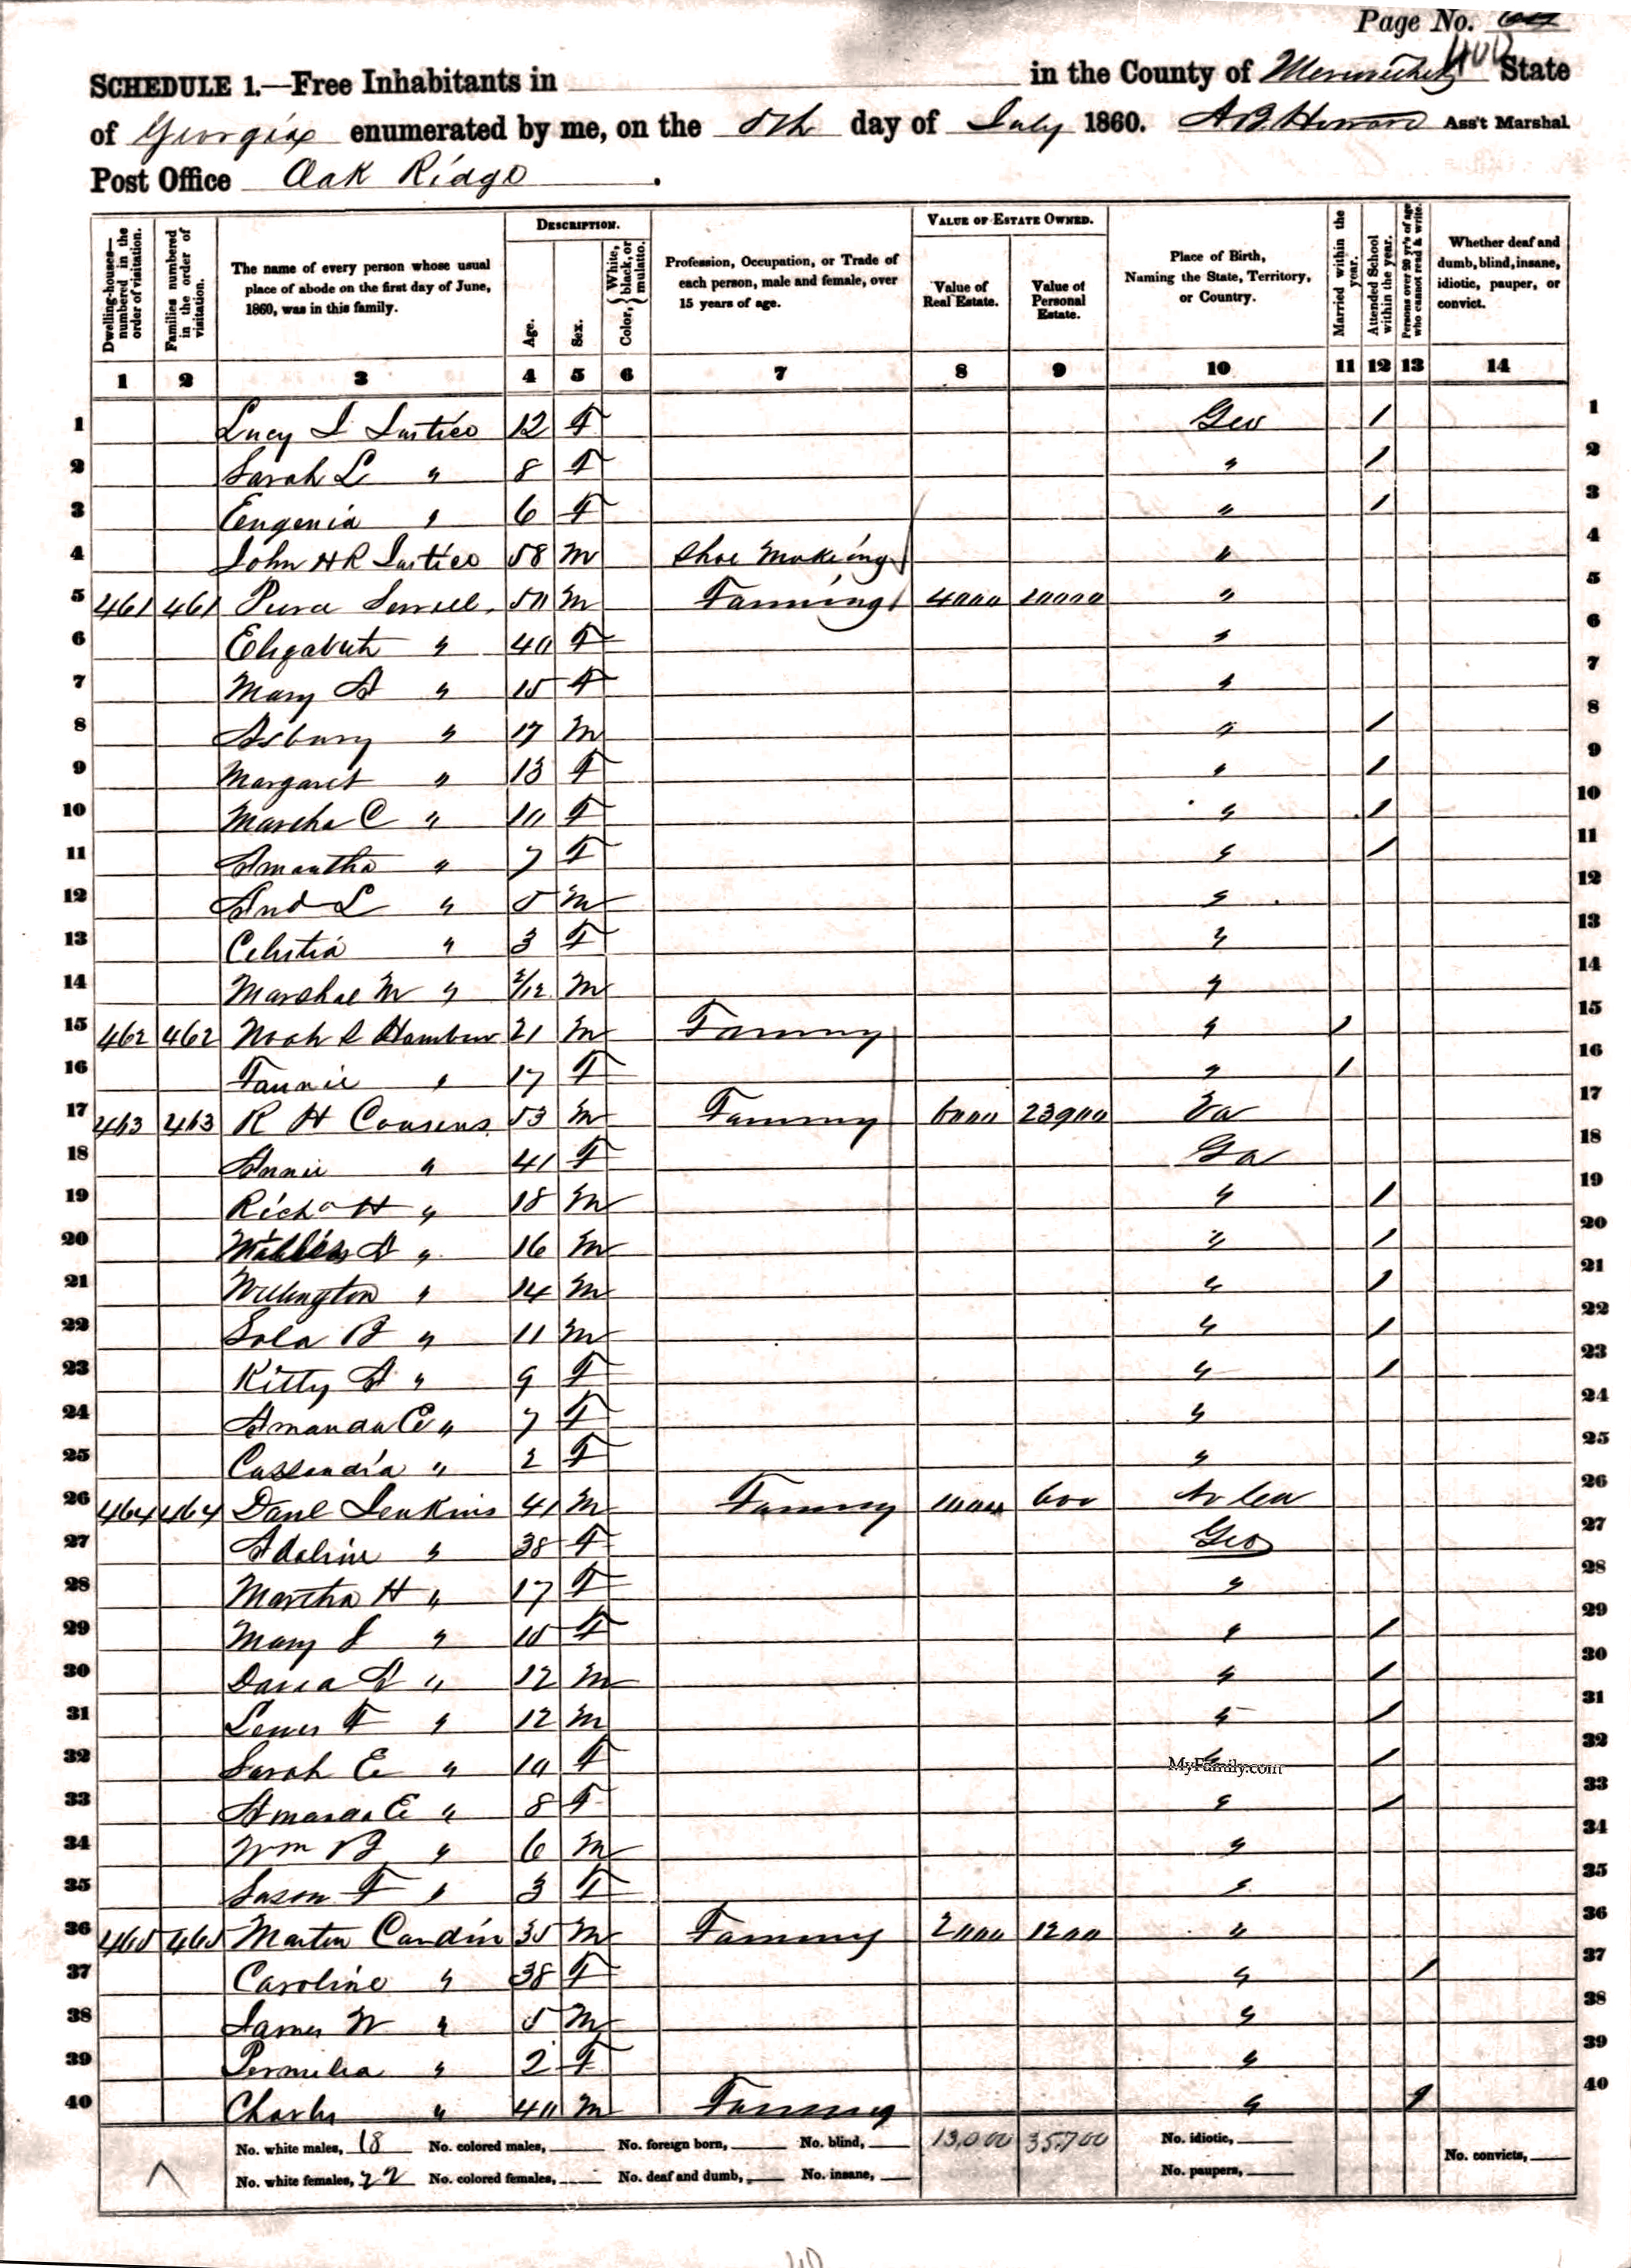 Page No. 64
400
SCHEDULE 1.—Free Inhabitants in in the County of Meriwether State
of Georgia enumerated by me, on the 5th day of July 1860. A B Howard Ass't Marshal
Post Office Oak Ridge .
Dwelling-houses—numbered in the order of visitation.
Families numbered in the order of visitation.
The name of every person whose usual place of abode on the first day of June, 1860, was in this family.
DESCRIPTION.
Age.
Sex.
Color, { White, black, or mulatto.
Profession, Occupation, or Trade of each person, male and female, over 15 years of age.
VALUE OF ESTATE OWNED.
Value of Real Estate.
Value of Personal Estate.
Place of Birth, Naming the State, Territory, or Country.
Married within the year.
Attended School within the year.
Persons over 20 y'rs of age who cannot read & write.
Whether deaf and dumb, blind, insane, idiotic, pauper, or convict.
1 2 3 4 5 6 7 8 9 10 11 12 13 14
1 Lucy J Justice 12 F Geo / 1
2 Sarah L " 8 F " / 2
3 Eugenia " 6 F " / 3
4 John H R Justice 58 M Shoe Making " 4
5 461 461 50 M Farming 4000 10000 " 5
6 Elizabeth " 40 F " 6
7 Mary A " 15 F " 7
8 Asbury " 17 M " / 8
9 Margaret " 13 F " / 9
10 Martha C " 10 F " / 10
11 Amantha " 7 F " / 11
12 L " 5 M " 12
13 Celestia " 3 F " 13
14 Marshal M " 2/12 M " 14
15 462 462 Noah 21 M Farming " / 15
16 Fannie " 17 F " / 16
17 463 463 R H Cousens 53 M Farming 6000 23900 Va 17
18 Annie " 41 F Ga 18
19 Richd H " 18 M " / 19
20 A " 16 M " / 20
21 Willington " 14 M " / 21
22 B " 11 M " / 22
23 Kitty A " 9 F " / 23
24 Amanda E " 7 F " 24
25 Cassandia " 2 F " 25
26 464 464 Danl Jenkins 41 M Farming 1000 600 26
27 Adaline " 38 F Geo 27
28 Martha H " 17 F " 28
29 Mary J " 15 F " / 29
30 A " 12 M " / 30
31 Lewis F " 12 M " / 31
32 Sarah E " 10 F " / 32
MyFamily.com
33 Amanda E " 8 F " / 33
34 Wm B " 6 M " 34
35 Susan F " 3 F " 35
36 465 465 Martin Cardin 35 M Farming 2000 1200 " 36
37 Caroline " 38 F " / 37
38 James W " 5 M " 38
39 Permelia " 2 F " 39
40 Charles " 40 M Farming " / 40
No. white males, 18 No. colored males, No. foreign born, No. blind, 13,000 35,700 No. idiotic,
No. white females, 22 No. colored females, No. deaf and dumb, No. insane, No. paupers, No. convicts,
40